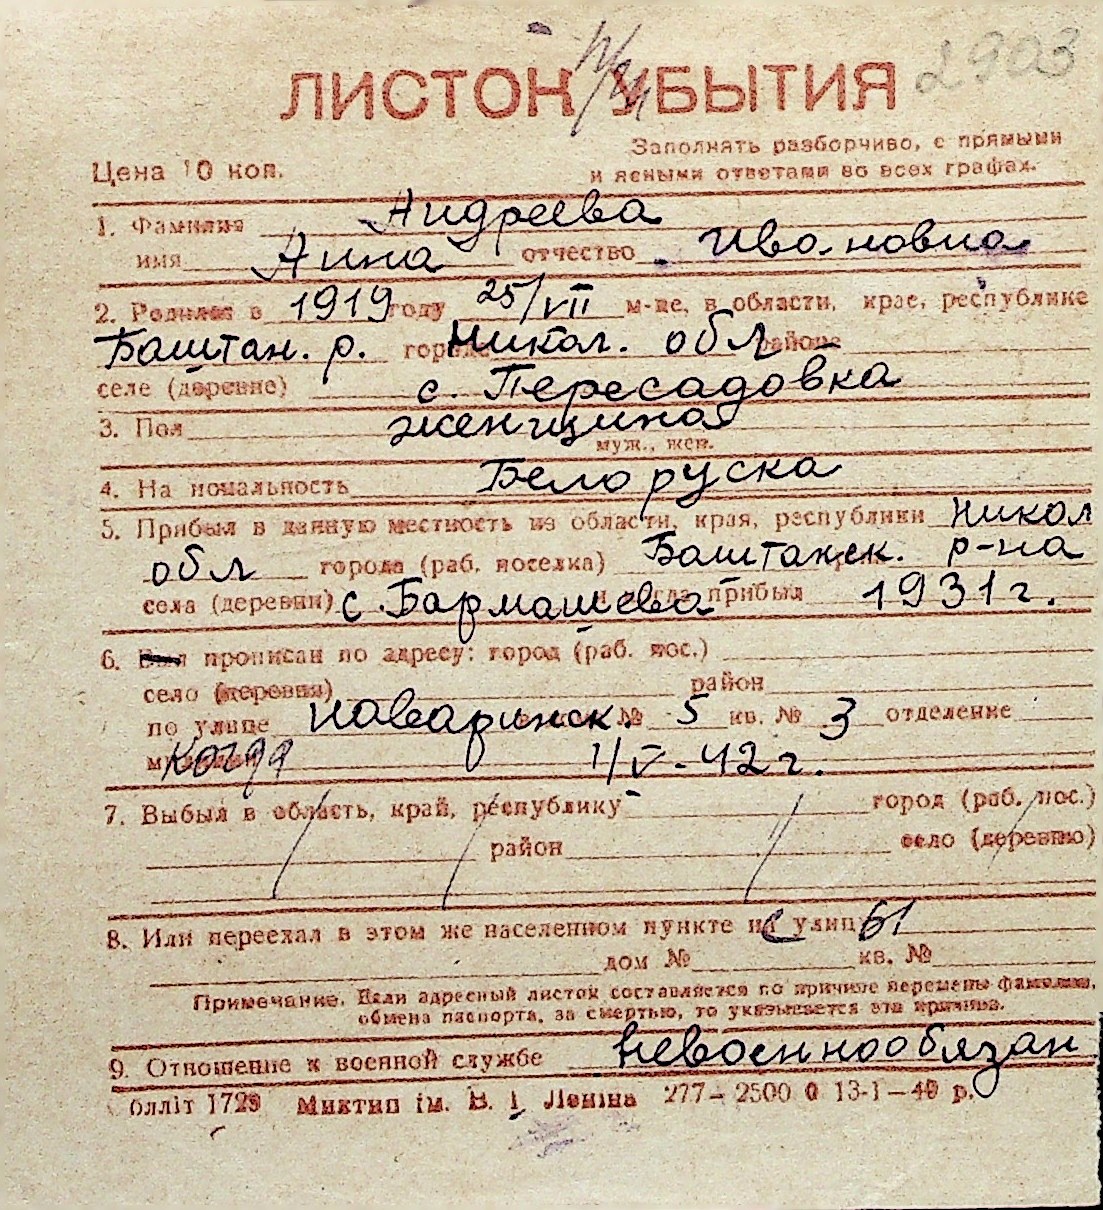 2903
ЛИСТОК УБЫТИЯ
Заполнять разборчиво, с прямыми
Цена 10 коп.
и ясными ответами во всех графах.
1. Фамилия Андреева
имя Анна отчество Ивановна
2. Родился в 1919 году 25/VII м-це, в области, крае, республике
Баштан. р. городе Никол. обл районе
селе (деревне) с. Пересадовка
3. Пол женщина
муж., жен.
4. Национальность Белоруска
5. Прибыл в данную местность из области, края, республики Никол
обл города (раб. поселка) Баштанск. р-на
села (деревни) с. Бармашева и когда прибыл 1931 г.
6. Был прописан по адресу: город (раб. пос.)
село (деревня) район
по улице Наваринск. № 5 кв. № 3 отделение
когда 1/V-42 г.
7. Выбыл в область, край, республику город (раб. пос.)
район село (деревню)
8. Или переехал в этом же населенном пункте на с улиц 61
дом № кв. №
Примечание. Если адресный листок составляется по причине перемены фамилии,
обмена паспорта, за смертью, то указывается эта причина.
9. Отношение к военной службе невоеннообязан
блліт 1729 Миктип ім. В. І. Леніна 277—2500 0 13-1—40 р.